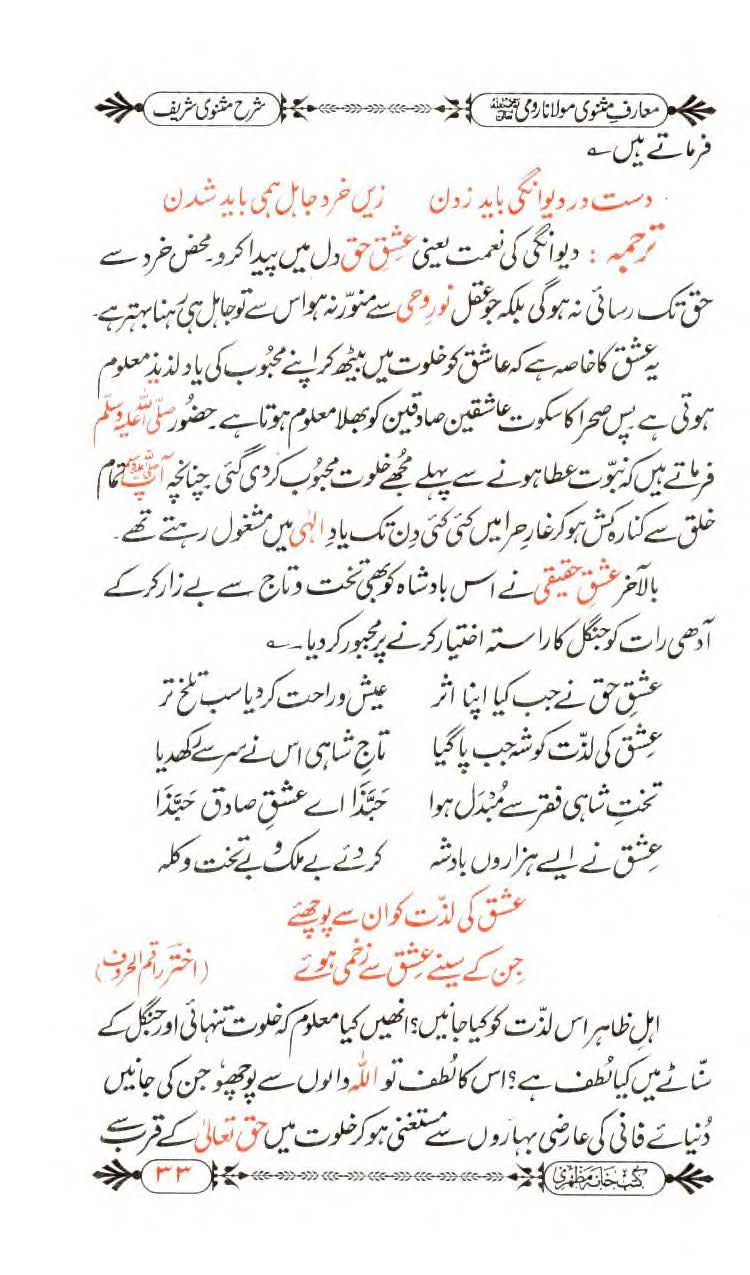 معارفِ مثنوی مولانا رومی رحمۃ اللہ علیہ
شرح مثنوی شریف
فرماتے ہیں ؎
دست در دیوانگی باید زدن زیں خرد جاہل ہمی باید شدن
ترجمہ : دیوانگی کی نعمت یعنی عشقِ حق دل میں پیدا کرو۔ محض خرد سے
حق تک رسائی نہ ہوگی بلکہ جو عقل نورِ وحی سے منوّر نہ ہو اس سے تو جاہل ہی رہنا بہتر ہے۔
یہ عشق کا خاصہ ہے کہ عاشق کو خلوت میں بیٹھ کر اپنے محبوب کی یاد لذیذ معلوم
ہوتی ہے پس صحرا کا سکوت عاشقین صادقین کو بھلا معلوم ہوتا ہے۔ حضُور صلّی اللہ علیہ وسلّم
فرماتے ہیں کہ نبوّت عطا ہونے سے پہلے مجھے خلوت محبُوب کر دی گئی چنانچہ آپ ﷺ تمام
خلق سے کنارہ کش ہو کر غارِ حرا میں کئی کئی دِن تک یادِ الٰہی میں مشغول رہتے تھے۔
بالآخر عشقِ حقیقی نے اس بادشاہ کو بھی تخت و تاج سے بے زار کر کے
آدھی رات کو جنگل کا راستہ اختیار کرنے پر مجبور کر دیا۔ ؎
عشقِ حق نے جب کیا اپنا اثر عیش و راحت کر دیا سب تلخ تر
عِشق کی لذّت کو شہ جب پا گیا تاجِ شاہی اس نے سر سے رکھ دیا
تختِ شاہی فقر سے مُبْدَل ہوا حَبَّذَا اے عشقِ صادق حَبَّذَا
عِشق نے ایسے ہزاروں بادشہ کر دئے بے ملک و بے تخت و کلہ
عشق کی لذّت کو ان سے پوچھئے
جِن کے سینے عِشق سے زخمی ہوئے (اختؔر راقم الحروف)
اہلِ ظاہر اس لذّت کو کیا جانیں؟ انھیں کیا معلوم کہ خلوت تنہائی اور جنگل کے
سنّاٹے میں کیا لُطف ہے؟ اس کا لُطف تو اللہ والوں سے پوچھو جن کی جانیں
دُنیائے فانی کی عارضی بہاروں سے مستغنی ہو کر خلوت میں حق تعالیٰ کے قرب سے
کتب خانہ مظہری
۳۳